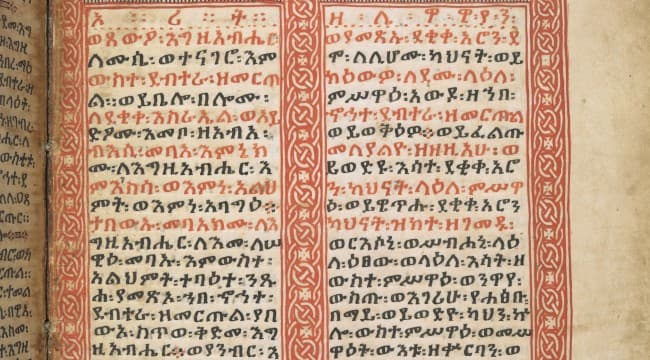 ኦሪት፡፡
ወጸውዖ፡እግዚአብሔር
ለሙሴ፡ወተናገሮ፡እም
ውስተ፡ደብተራ፡ዘመርጡ
ል፡፡ወይቤሎ፡በሎሙ፡
ለደቂቀ፡እስራኤል፡ወአይ
ድዖሙ፡እመቦ፡ዘአብአ፡
ብእሴ፡መባአ፡እምኔክ
ሙ፡ለእግዚአብሔር፡እ
ምእንስሳ፡ወእምነ፡አልህ
ምት፡ወእምነ፡አባግዕ፡፡
ተበውኡ፡መባእክሙ፡ለእ
ግዚአብሔር፡ለእመ፡ለሠ
ዋዕ፡መባኡ፡እምውስተ፡
አልህምት፡ተባዕተ፡ንጹ
ሐ፡ያመጽኦ፡ኀበ፡ኆኅተ፡
ደብተራ፡ዘመርጡል፡ያበ
ውእ፡ከጥወ፡ቅድመ፡እግ
ዚአብሔር፡፡ወያንብር፡እ
ዘሌዋውያን፡
ወያመጽኡ፡ደቂቀ፡አሮን፡ደ
ሞ፡ለሊሆሙ፡ካህናት፡ወይ
ክዕውዎ፡ለደሙ፡ላዕለ፡
ምሥዋዕ፡አውደ፡ዘኀበ፡
ኆኅተ፡ደብተራ፡ዘመርጡል
ወይወቅዕዎ፡፡ወይፈልጡ
መለያልዮ፡ዘዘዚአሁ፡ወ
ይወድዩ፡እሳተ፡ደቂቀ፡አሮ
ን፡ካህናት፡ላዕለ፡ምሥዋ
ዕ፡ወይዌጥሑ፡ደቂቀ፡አሮን
ካህናት፡ዝክተ፡ዘገመዱ፡
ወርእሶኒ፡ወሥብሐኒ፡ላዕ
ለ፡ዕፀው፡ወላዕለ፡እሳት፡ዘ
ውስተ፡ምሥዋዕ፡ወንዋየ፡
ውስጡ፡ወእገሪሁ፡የሐፅቡ፡
በማይ፡ወይወድዮ፡ካህን፡ኵ
ሎ፡ውስተ፡ምሥዋዕ፡ወመሥ
ዋዕት፡ውእቱ፡ዘቍርባን፡ወ